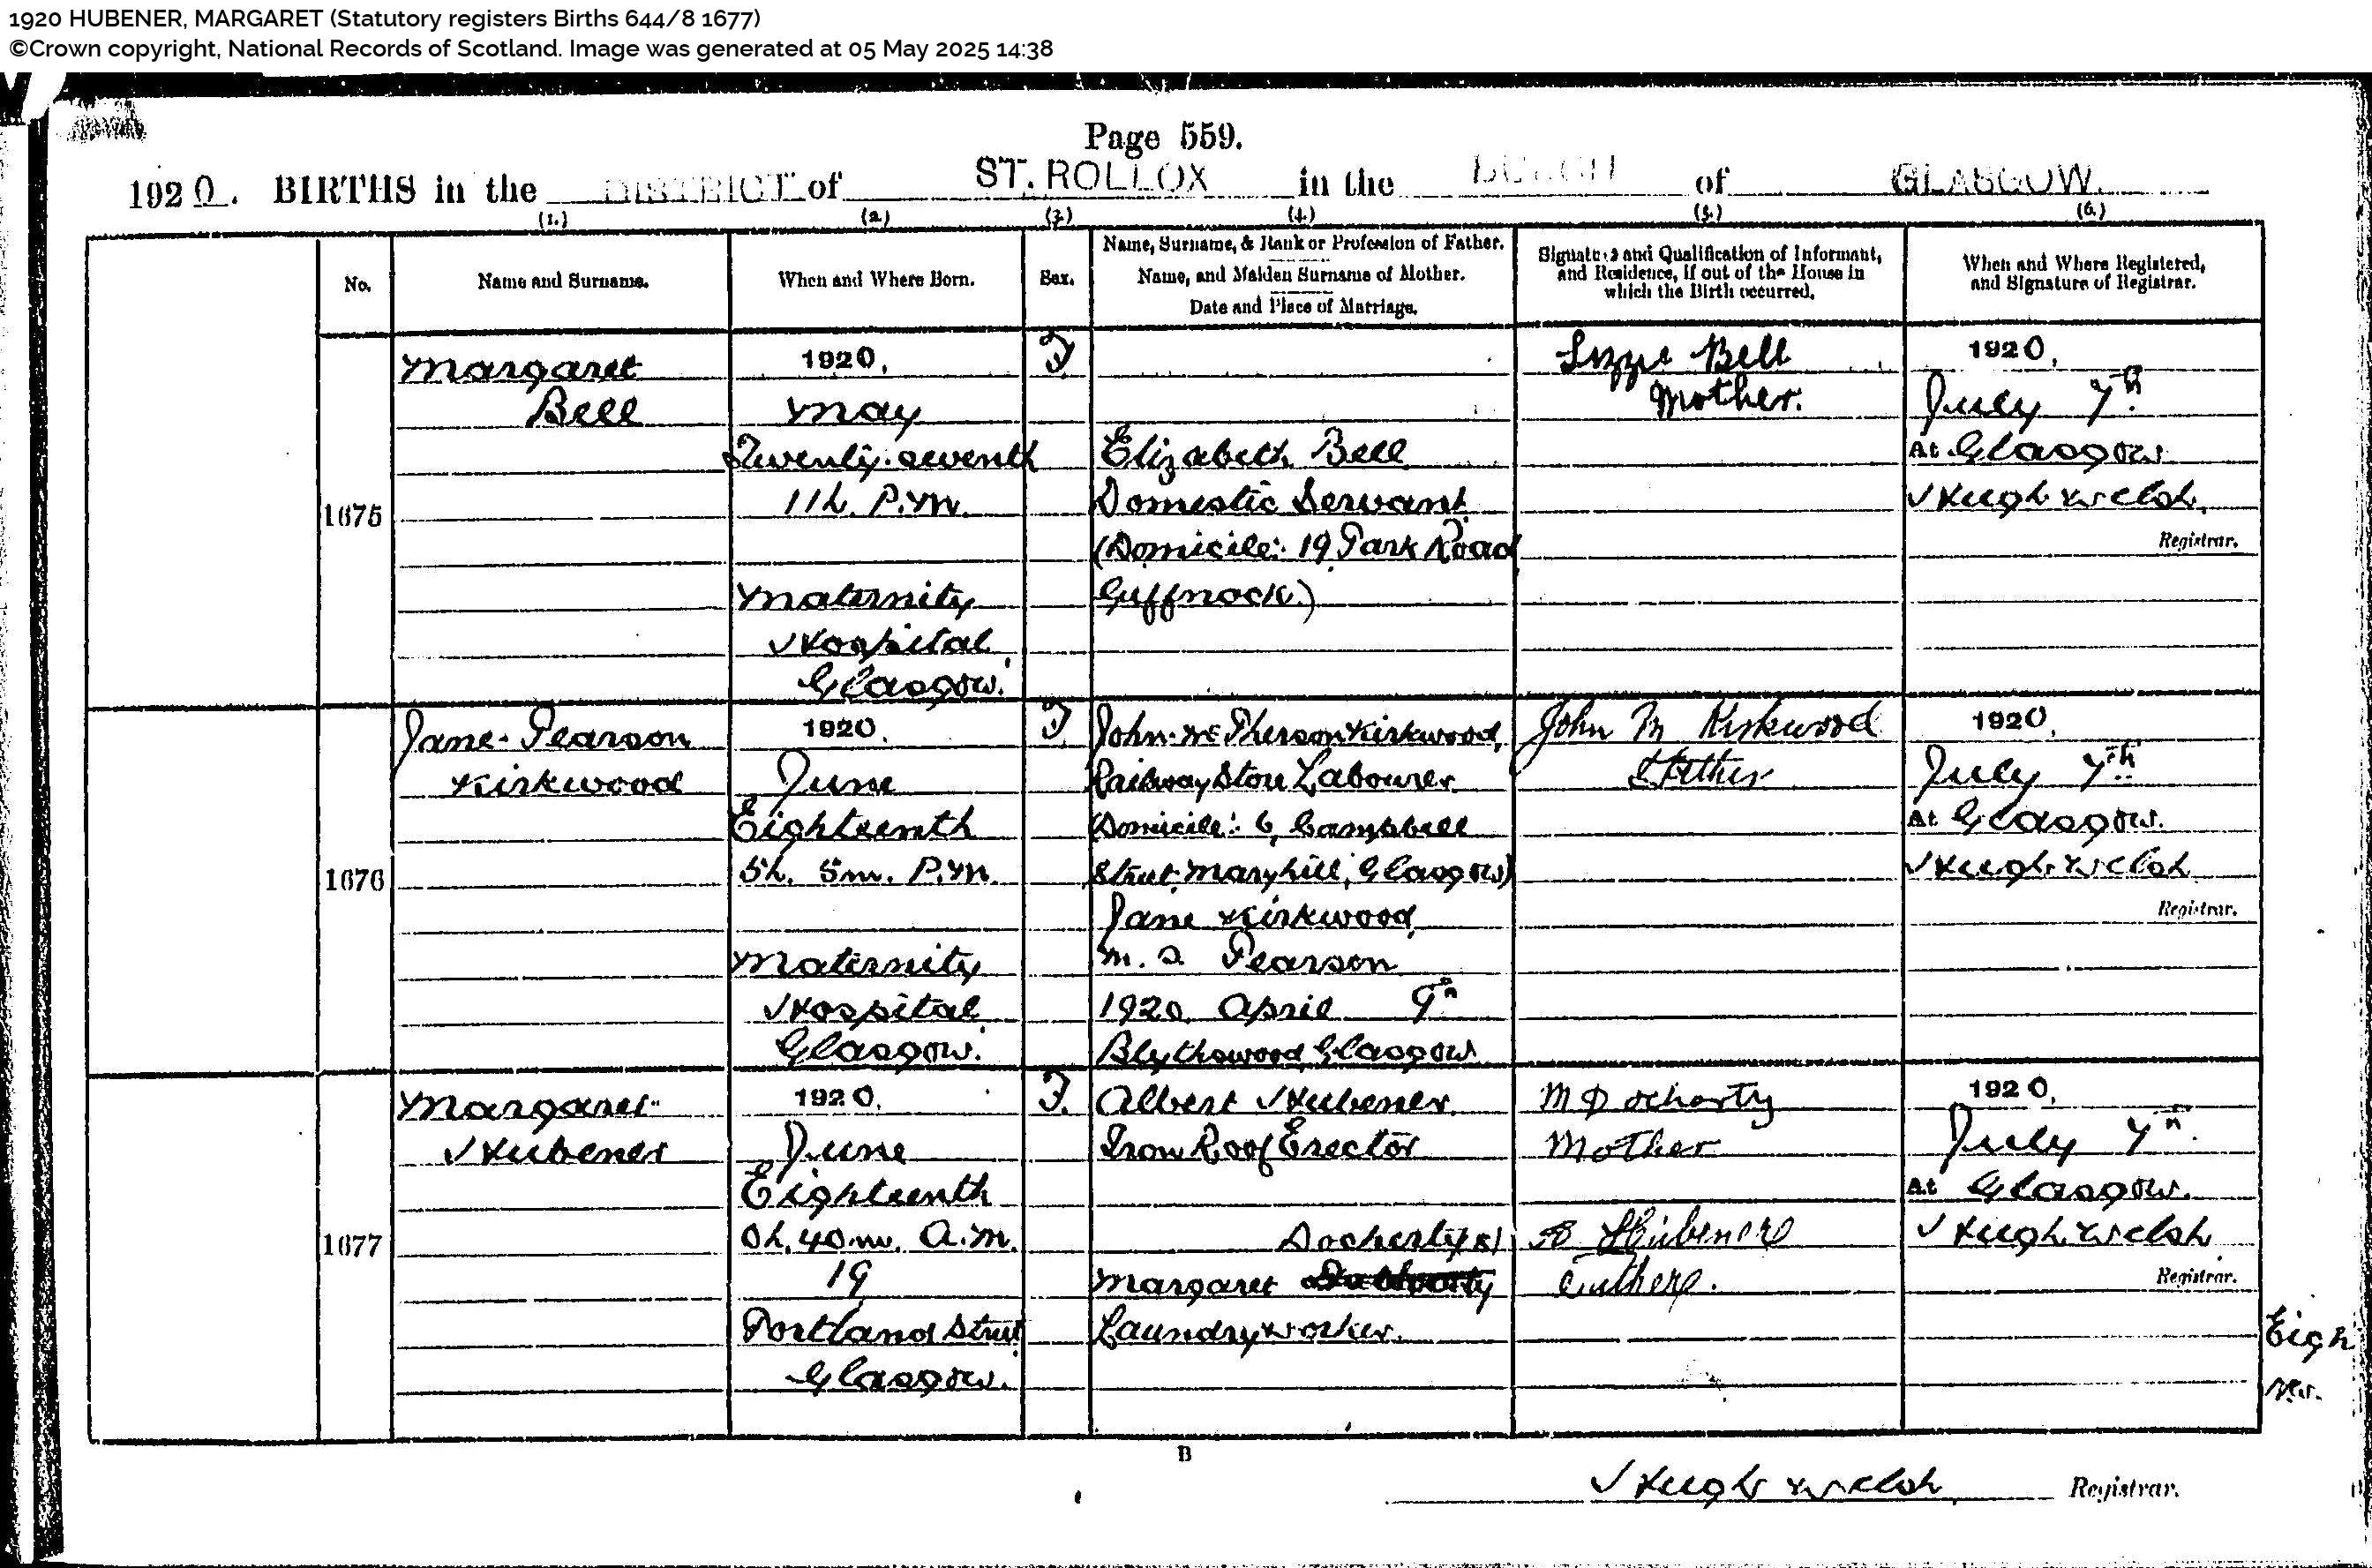 1920 HUBENER, MARGARET (Statutory registers Births 644/8 1677)
©Crown copyright, National Records of Scotland. Image was generated at 05 May 2025 14:38
Page 559.
1920. BIRTHS in the DISTRICT of ST. ROLLOX in the BURGH of GLASGOW.
(1.) (2.) (3.) (4.) (5.) (6.)
No.
Name and Surname.
When and Where Born.
Sex.
Name, Surname, & Rank or Profession of Father.
Name, and Maiden Surname of Mother.
Date and Place of Marriage.
Signature and Qualification of Informant,
and Residence, if out of the House in
which the Birth occurred.
When and Where Registered,
and Signature of Registrar.
1675
Margaret
Bell
1920.
May
Twenty-seventh
11h. P.M.
Maternity
Hospital
Glasgow.
F
Elizabeth Bell
Domestic Servant
(Domicile: 19 Park Road
Giffnock.)
Lizzie Bell
Mother.
1920.
July 7th
At Glasgow
Hugh Welsh
Registrar.
1676
Jane Pearson
Kirkwood
1920.
June
Eighteenth
5h. 5m. P.M.
Maternity
Hospital
Glasgow.
F
John McPherson Kirkwood,
Railway Store Labourer
(Domicile: 6, Campbell
Street Maryhill, Glasgow)
Jane Kirkwood
m.s. Pearson
1920 April 9th
Blythswood Glasgow
John M Kirkwood
Father
1920.
July 7th
At Glasgow.
Hugh Welsh
Registrar.
1677
Margaret
Hubener
1920.
June
Eighteenth
0h. 40m. A.M.
19
Portland Street
Glasgow.
F.
Albert Hubener
Iron Roof Erector
Docherty
Margaret
Laundryworker.
M Docharty
Mother
A Hubener
Father.
1920.
July 7th
At Glasgow.
Hugh Welsh
Registrar.
Eigh
B
Hugh Welsh Registrar.